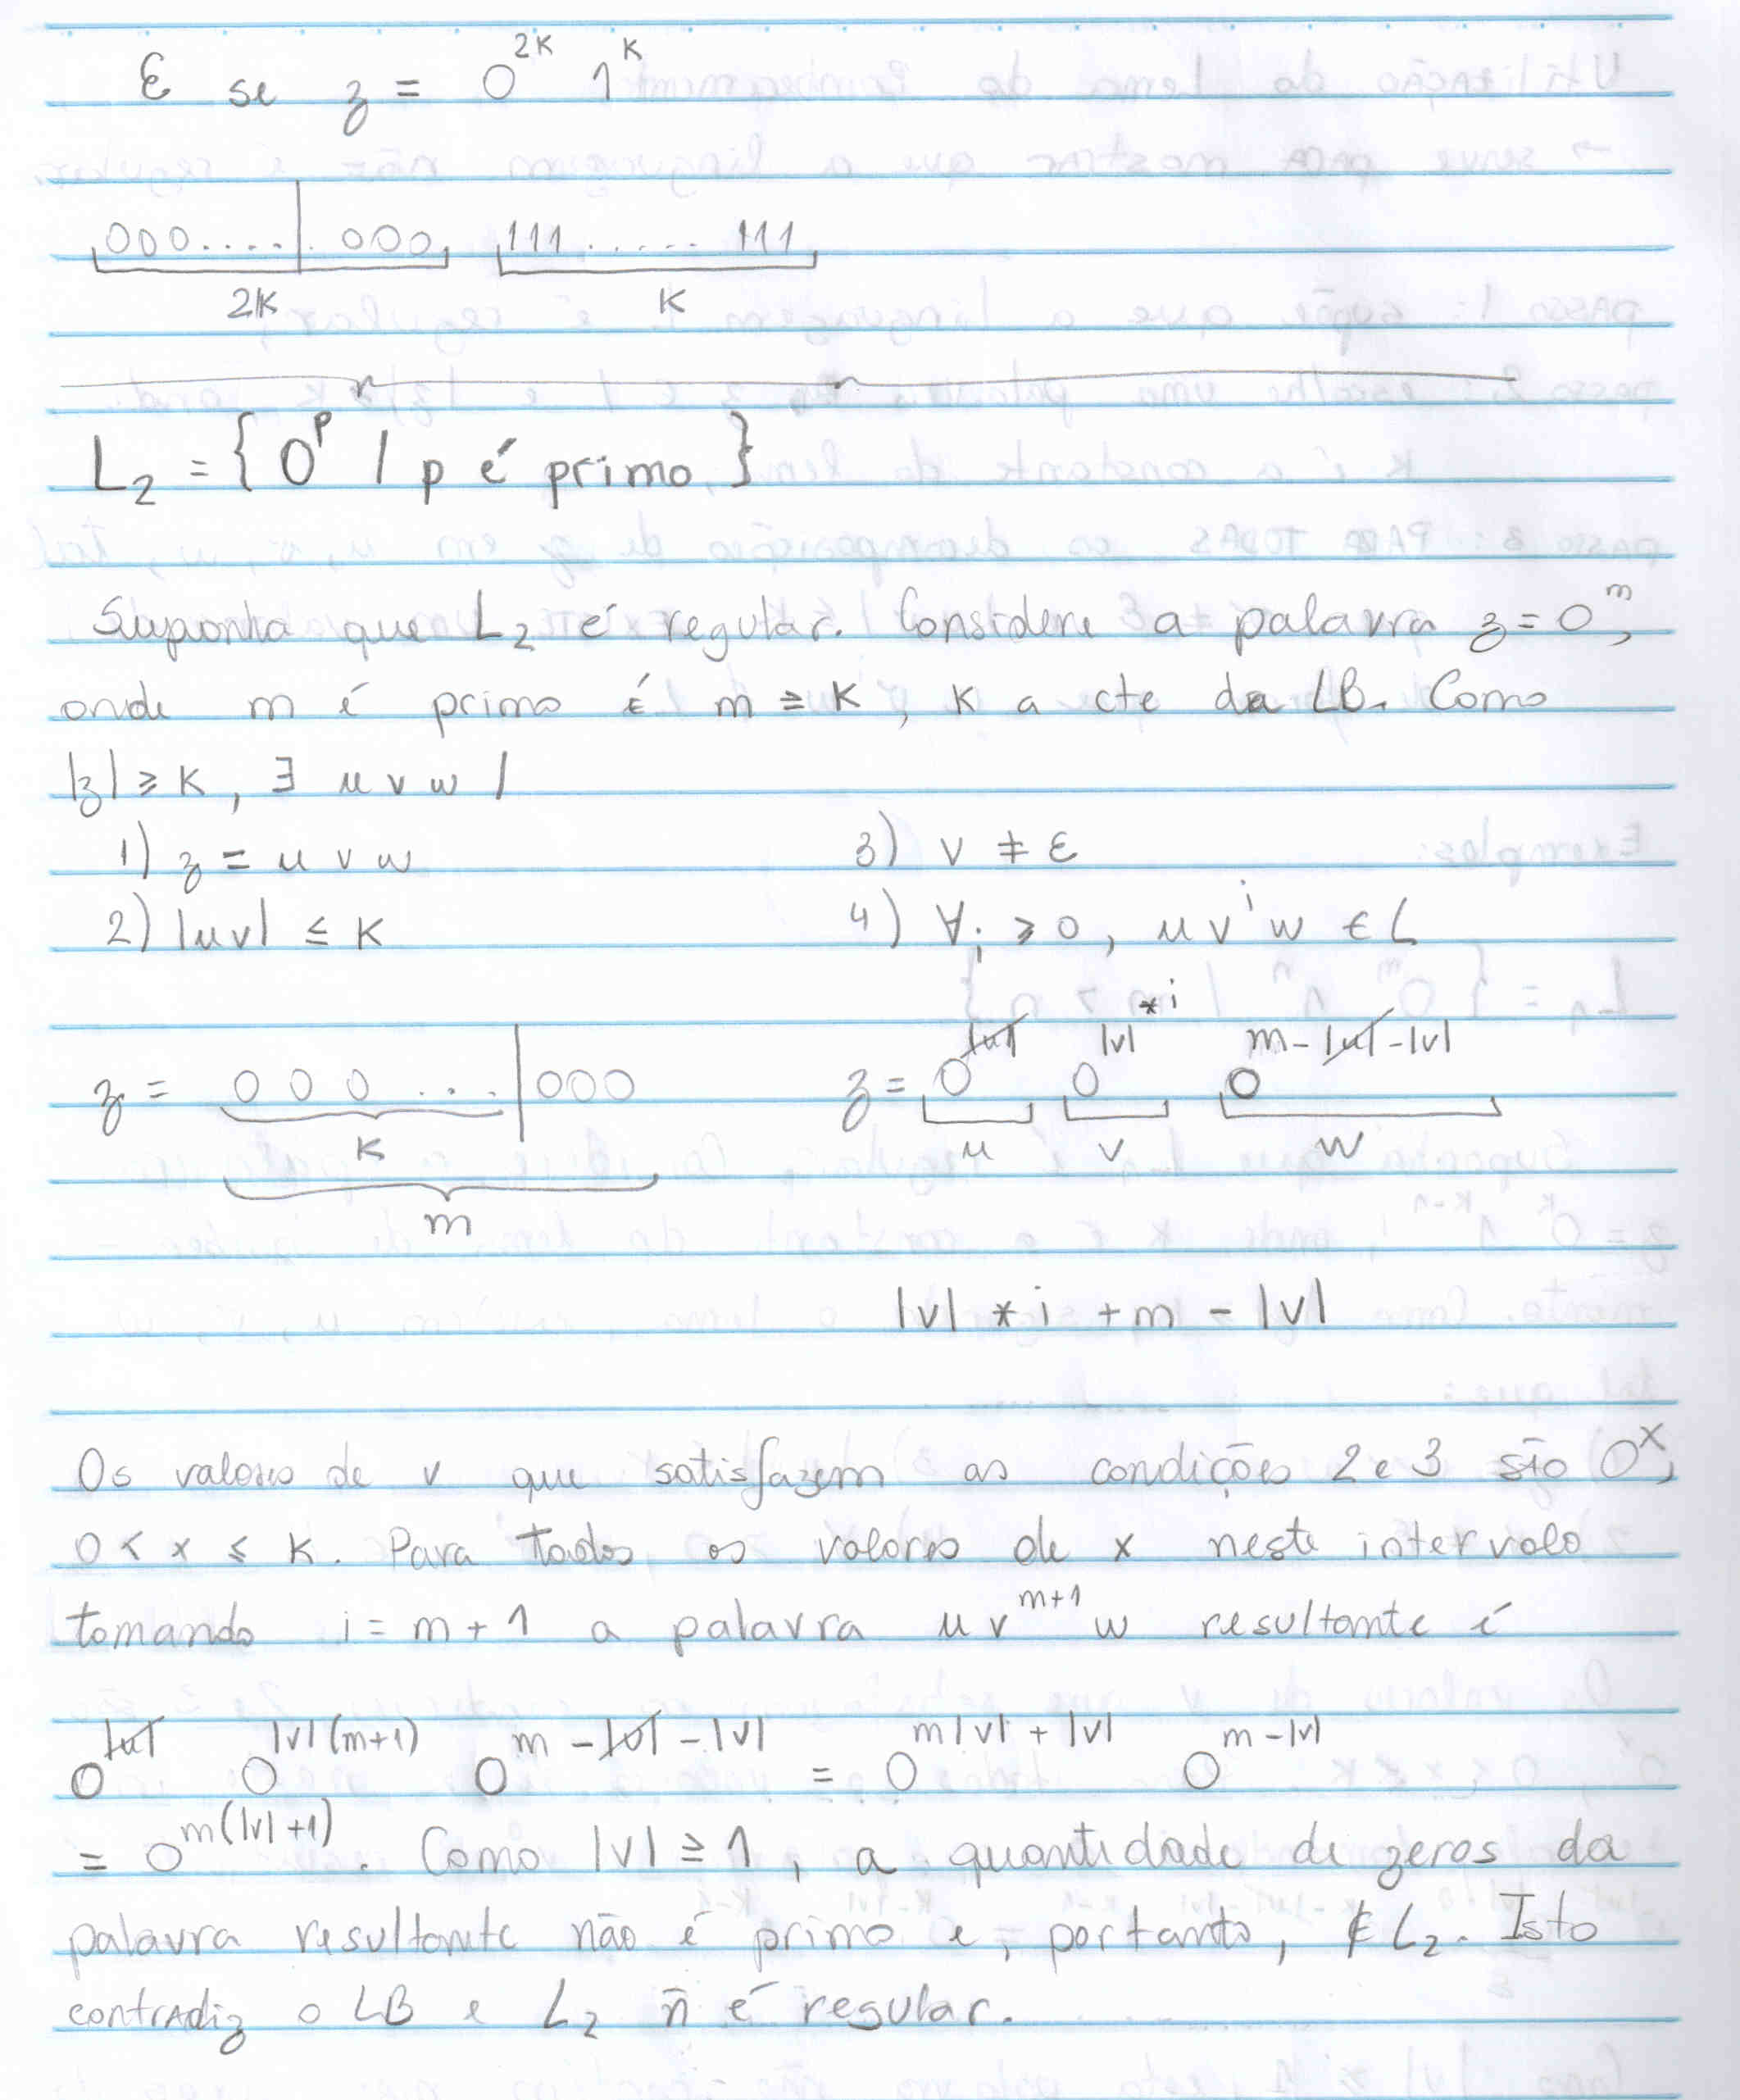 E se z = 0^{2K} 1^{K}
000.....000 111......111
2K K
L₂ = {0^p / p é primo}
Suponha que L₂ é regular. Considere a palavra z = 0^m,
onde m é primo E m ≥ K, K a cte da LB. Como
|z| ≥ K, ∃ u v w /
1) z = u v w 3) v ≠ ε
2) |uv| ≤ K 4) ∀i ≥ 0, u v^i w ∈ L
z = 0 0 0 ...|000 z = 0^{|u|} 0^{|v| * i} 0^{m-|u|-|v|}
K u v w
m
|v| * i + m - |v|
Os valores de v que satisfazem as condições 2 e 3 são 0^x,
0 < x ≤ K. Para todos os valores de x neste intervalo
tomando i = m + 1 a palavra u v^{m+1} w resultante é
0^{|u|} 0^{|v|(m+1)} 0^{m-|u|-|v|} = 0^{m|v|+|v|} 0^{m-|v|}
= 0^{m(|v|+1)}. Como |v| ≥ 1, a quantidade de zeros da
palavra resultante não é primo e, portanto, ∉ L₂. Isto
contradiz o LB e L₂ ñ é regular.